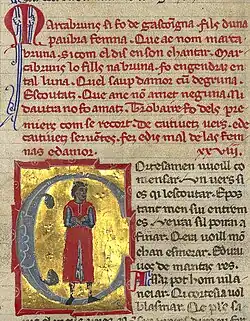 Marcabruns si fo de gascoigna. Fils duna
paubra femna. Que ac nom marca
bruna. si com el dis en son chantar. Marc
cabruns lo fills na bruna. fo engendraz en
tal luna. Quel saup damor cum degruna.
Escoutatz. Que anc non amet neguna. Ni
dautra no fo amatz. Trobaire fo dels pri
mers com se recort. De caitiuetz uers. e de
caitiuetz seruentes. fez e dis mal de las fem
nas e damor. xxviii.
Cortesamen uoill co
mensar. Un uers si
es qui lescoutar. E pos
tant men sui entrem
es. Veirai sil poirai a
finar. Qera uoill mo
chan esmerar. E dirai
uos de mantas res.
Assatz pot hom uila
neiar. Qui cortesia uol
blasmar.